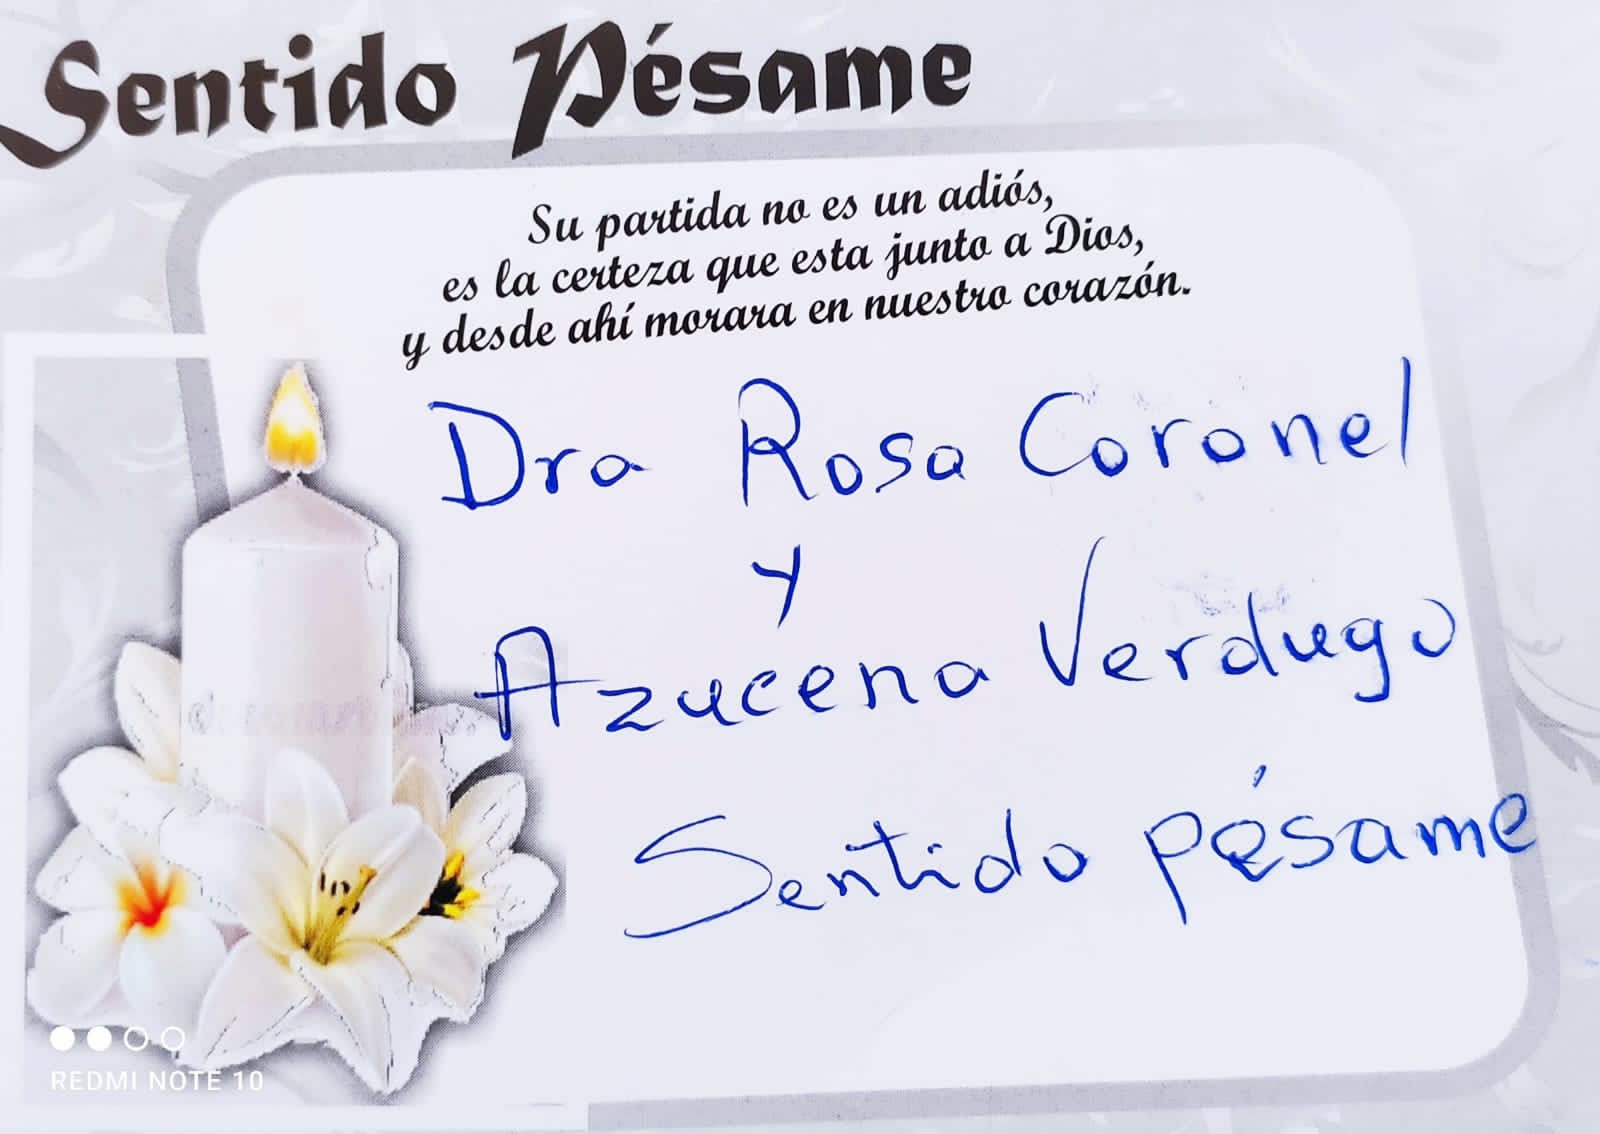 Sentido Pésame
Su partida no es un adiós,
es la certeza que esta junto a Dios,
y desde ahí morara en nuestro corazón.
Dra Rosa Coronel
y
Azucena Verdugo
Sentido pésame
REDMI NOTE 10